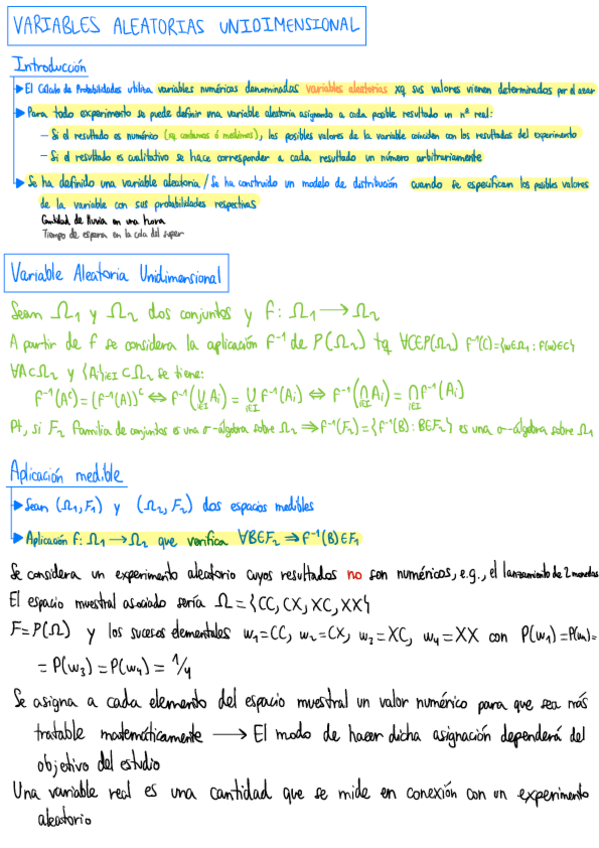 VARIABLES ALEATORIAS UNIDIMENSIONAL
Introducción
El Cálculo de Probabilidades utiliza variables numéricas denominadas variables aleatorias xq sus valores vienen determinados por el azar
Para todo experimento se puede definir una variable aleatoria asignando a cada posible resultado un nº real:
- Si el resultado es numérico (xq contamos ó medimos), los posibles valores de la variable coinciden con los resultados del experimento
- Si el resultado es cualitativo se hace corresponder a cada resultado un número arbitrariamente
Se ha definido una variable aleatoria / Se ha construido un modelo de distribución cuando se especifican los posibles valores
de la variable con sus probabilidades respectivas
Cantidad de lluvia en una hora
Tiempo de espera en la cola del super
Variable Aleatoria Unidimensional
Sean Ω₁ y Ω₂ dos conjuntos y f: Ω₁ → Ω₂
A partir de f se considera la aplicación f⁻¹ de P(Ω₂) tq ∀C∈P(Ω₂) f⁻¹(C)={w∈Ω₁ : f(w)∈C}
∀A⊂Ω₂ y {Aᵢ}i∈I ⊂ Ω₂ se tiene:
f⁻¹(Aᶜ) = (f⁻¹(A))ᶜ ⇔ f⁻¹(⋃i∈I Aᵢ) = ⋃i∈I f⁻¹(Aᵢ) ⇔ f⁻¹(⋂i∈I Aᵢ) = ⋂i∈I f⁻¹(Aᵢ)
Pt, si F₂ familia de conjuntos es una σ-álgebra sobre Ω₂ ⇒ f⁻¹(F₂) = {f⁻¹(B) : B∈F₂} es una σ-álgebra sobre Ω₁
Aplicación medible
Sean (Ω₁,F₁) y (Ω₂,F₂) dos espacios medibles
Aplicación f: Ω₁ → Ω₂ que verifica ∀B∈F₂ ⇒ f⁻¹(B)∈F₁
Se considera un experimento aleatorio cuyos resultados no son numéricos, e.g., el lanzamiento de 2 monedas
El espacio muestral asociado sería Ω = {CC, CX, XC, XX}
F=P(Ω) y los sucesos elementales w₁=CC, w₂=CX, w₃=XC, w₄=XX con P(w₁)=P(w₂)=
= P(w₃) = P(w₄) = 1/4
Se asigna a cada elemento del espacio muestral un valor numérico para que sea más
tratable matemáticamente → El modo de hacer dicha asignación dependerá del
objetivo del estudio
Una variable real es una cantidad que se mide en conexión con un experimento
aleatorio